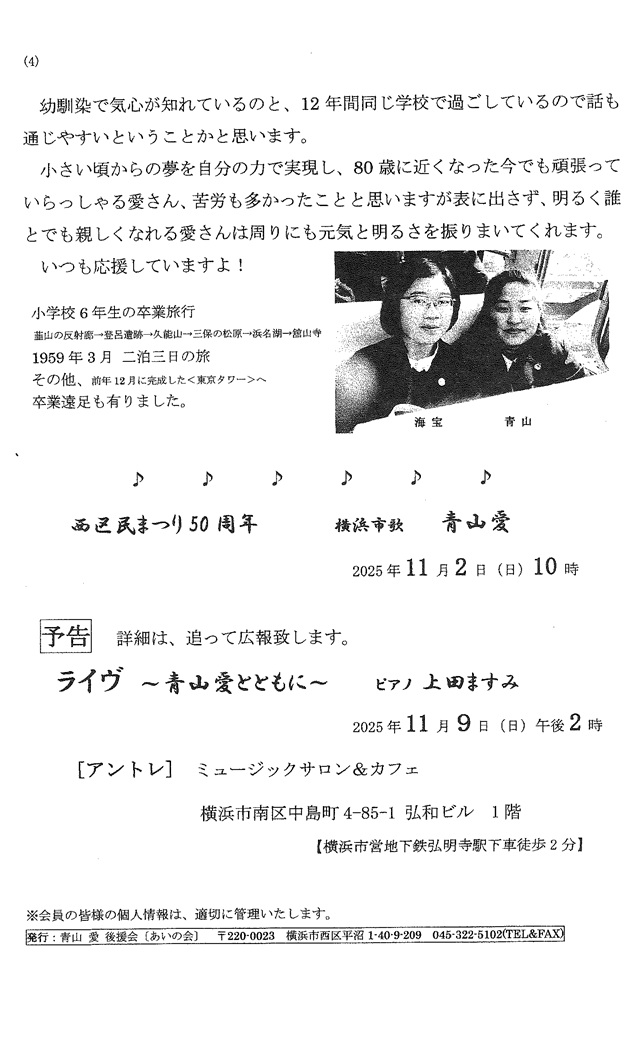 (4)
幼馴染で気心が知れているのと、12年間同じ学校で過ごしているので話も
通じやすいということかと思います。
小さい頃からの夢を自分の力で実現し、80歳に近くなった今でも頑張って
いらっしゃる愛さん、苦労も多かったことと思いますが表に出さず、明るく誰
とでも親しくなれる愛さんは周りにも元気と明るさを振りまいてくれます。
いつも応援していますよ！
小学校6年生の卒業旅行
韮山の反射廊→登呂遺跡→久能山→三保の松原→浜名湖→舘山寺
1959年3月 二泊三日の旅
その他、前年12月に完成した<東京タワー>へ
卒業遠足も有りました。
海宝 青山
♪ ♪ ♪ ♪ ♪ ♪
西区民まつり50周年 横浜市歌 青山愛
2025年11月2日（日）10時
予告 詳細は、追って広報致します。
ライヴ ～青山愛とともに～ ピアノ 上田ますみ
2025年11月9日（日）午後2時
［アントレ］ ミュージックサロン＆カフェ
横浜市南区中島町4-85-1 弘和ビル 1階
【横浜市営地下鉄弘明寺駅下車徒歩2分】
※会員の皆様の個人情報は、適切に管理いたします。
発行：青山 愛 後援会〔あいの会〕 〒220-0023 横浜市西区平沼1-40-9-209 045-322-5102(TEL&FAX)